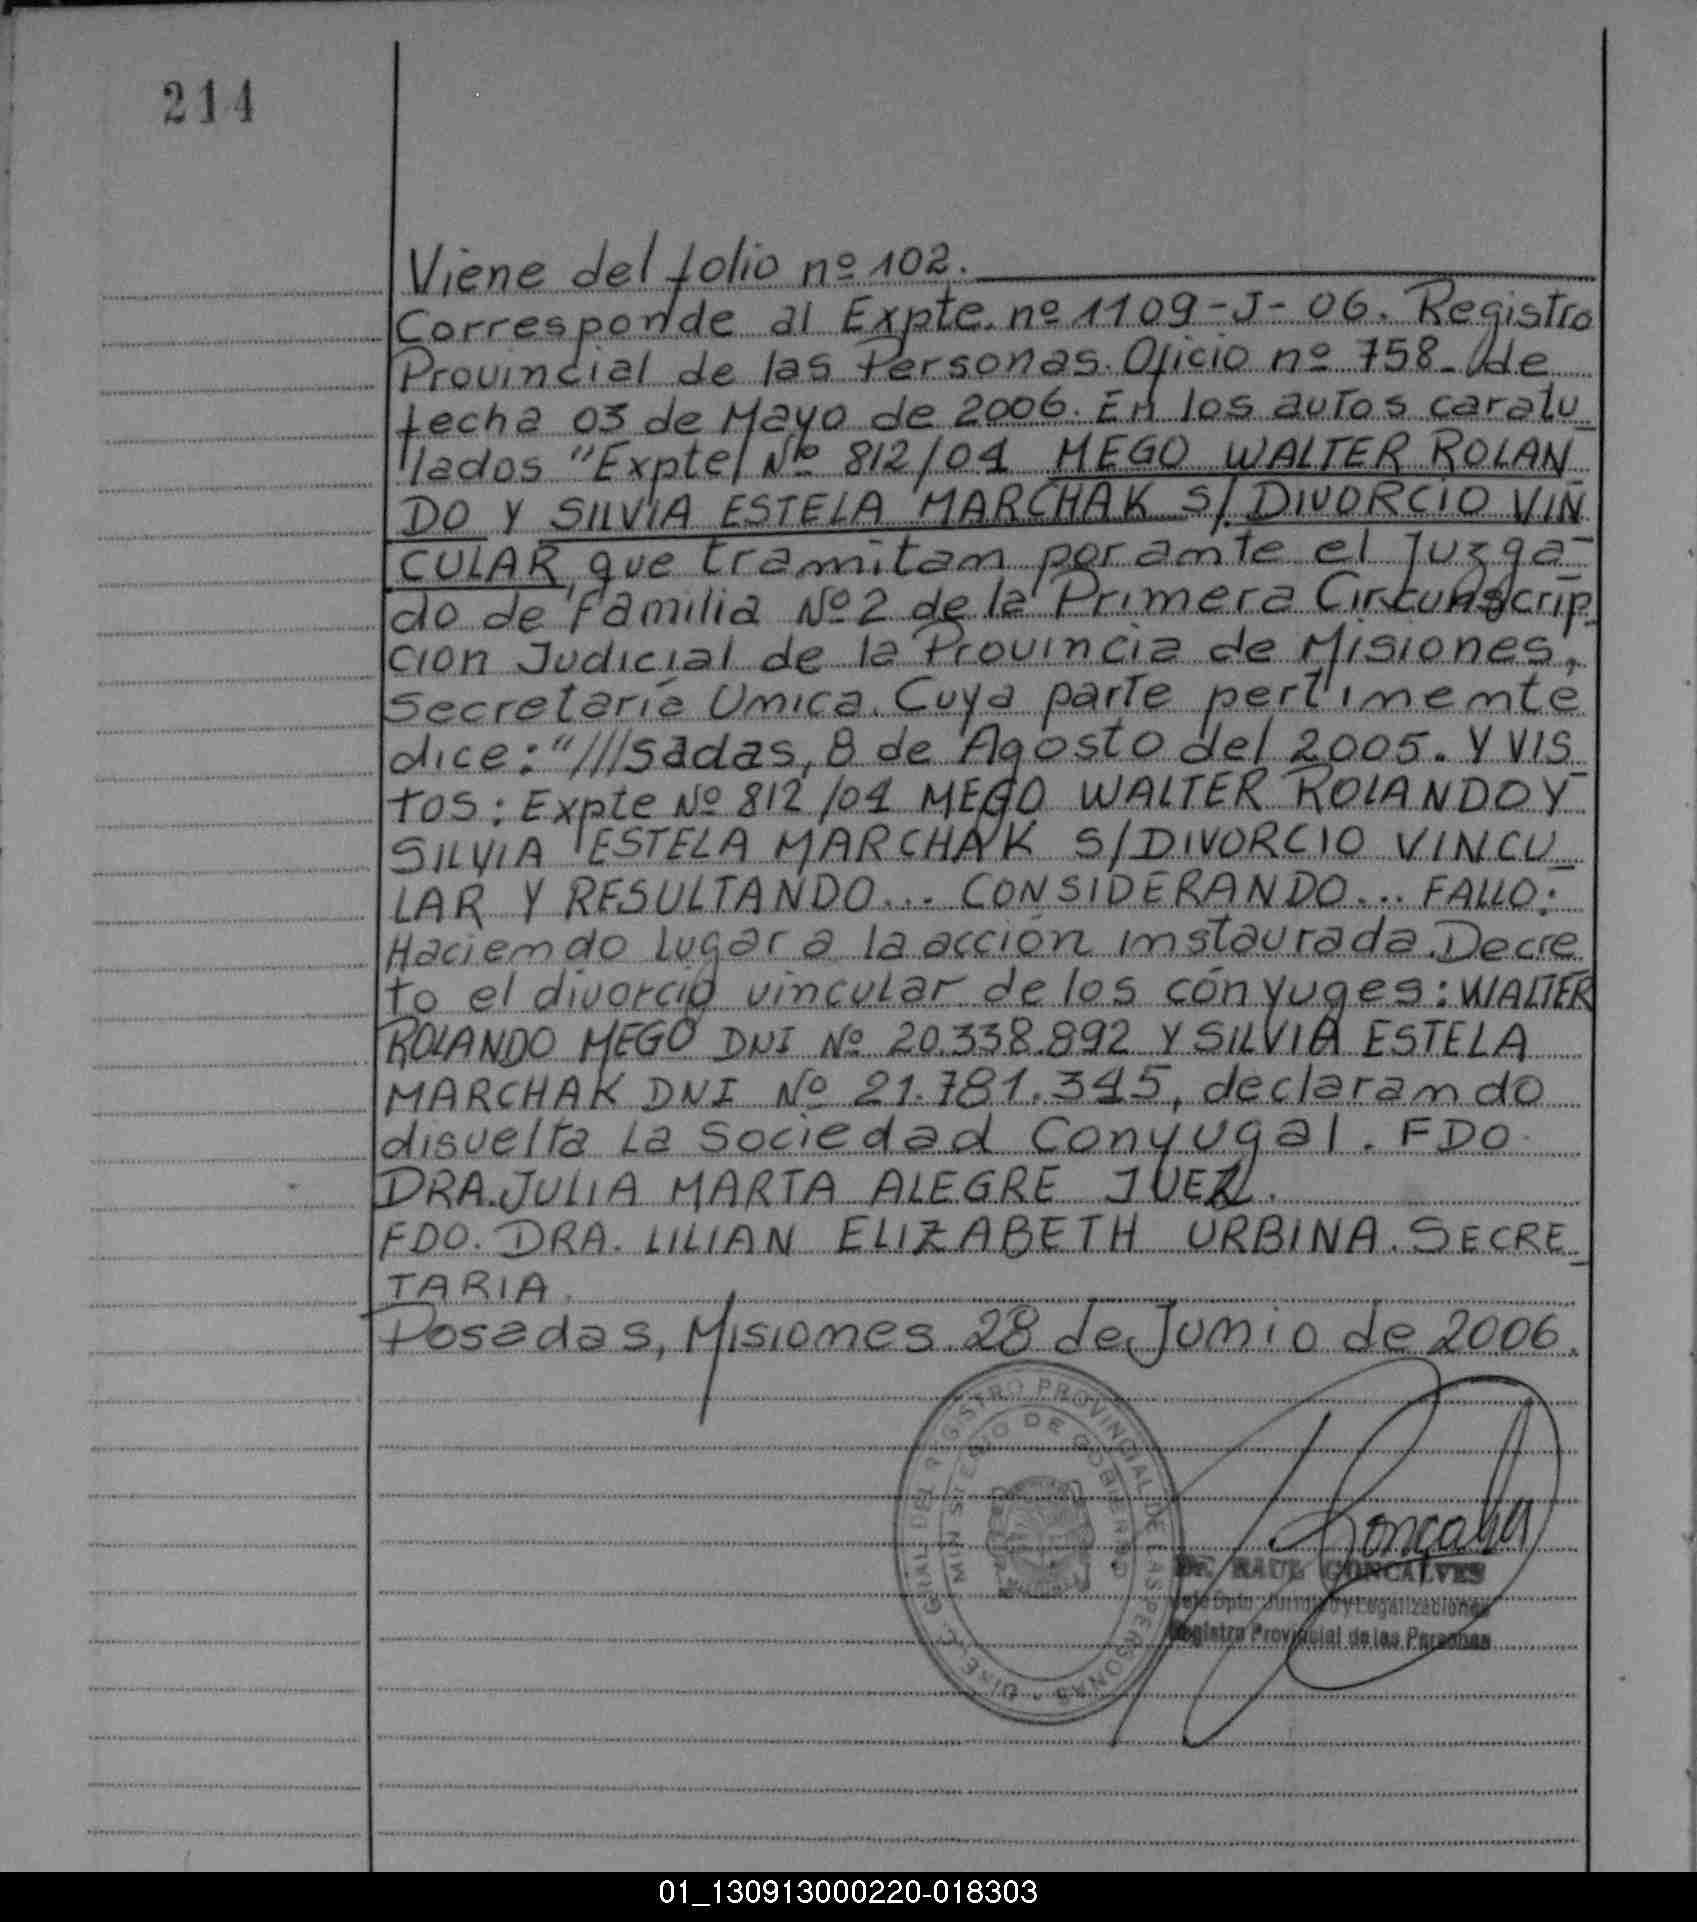 214
Viene del folio nº 102.
Corresponde al Expte. nº 1109-J-06. Registro
Provincial de las Personas. Oficio nº 758_ de
fecha 03 de Mayo de 2006. En los autos caratu_
lados "Expte Nº 812/04 MEGO WALTER ROLAN_
DO Y SILVIA ESTELA MARCHAK S/ DIVORCIO VIN_
CULAR, que tramitan por ante el Juzga_
do de Familia Nº 2 de la Primera Circunscrip_
cion Judicial de la Provincia de Misiones,
Secretaría Unica. Cuya parte pertinente
dice: "///sadas, 8 de Agosto del 2005. Y VIS_
TOS: Expte Nº 812/04 MEGO WALTER ROLANDO Y
SILVIA ESTELA MARCHAK S/DIVORCIO VINCU_
LAR Y RESULTANDO... CONSIDERANDO... FALLO:
Haciendo lugar a la acción instaurada. Decre_
to el divorcio vincular de los cónyuges: WALTER
ROLANDO MEGO DNI Nº 20.338.892 Y SILVIA ESTELA
MARCHAK DNI Nº 21.781.345, declarando
disuelta La Sociedad Conyugal. FDO.
DRA. JULIA MARTA ALEGRE JUEZ.
FDO. DRA. LILIAN ELIZABETH URBINA. SECRE_
TARIA.
Posadas, Misiones 28 de Junio de 2006.
DIREC. GRAL. DEL REGISTRO PROVINCIAL DE LAS PERSONAS
MINISTERIO DE GOBIERNO
DR. RAUL GONCALVES
Jefe Dpto. Jurídico y Legalizaciones
Registro Provincial de las Personas
01_130913000220-018303